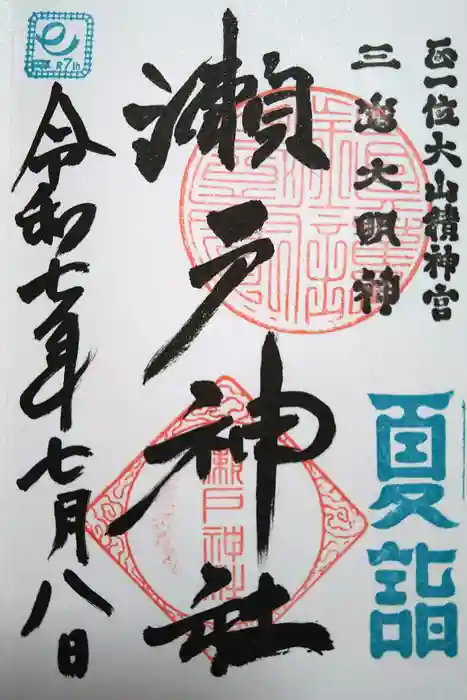 正一位大山積神宮
三島大明神
夏詣
瀬戸神社
瀬戸神社
令和七年七月八日
R7th